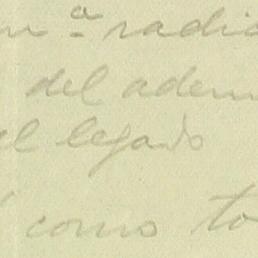 radic
del adem
el legado
como to